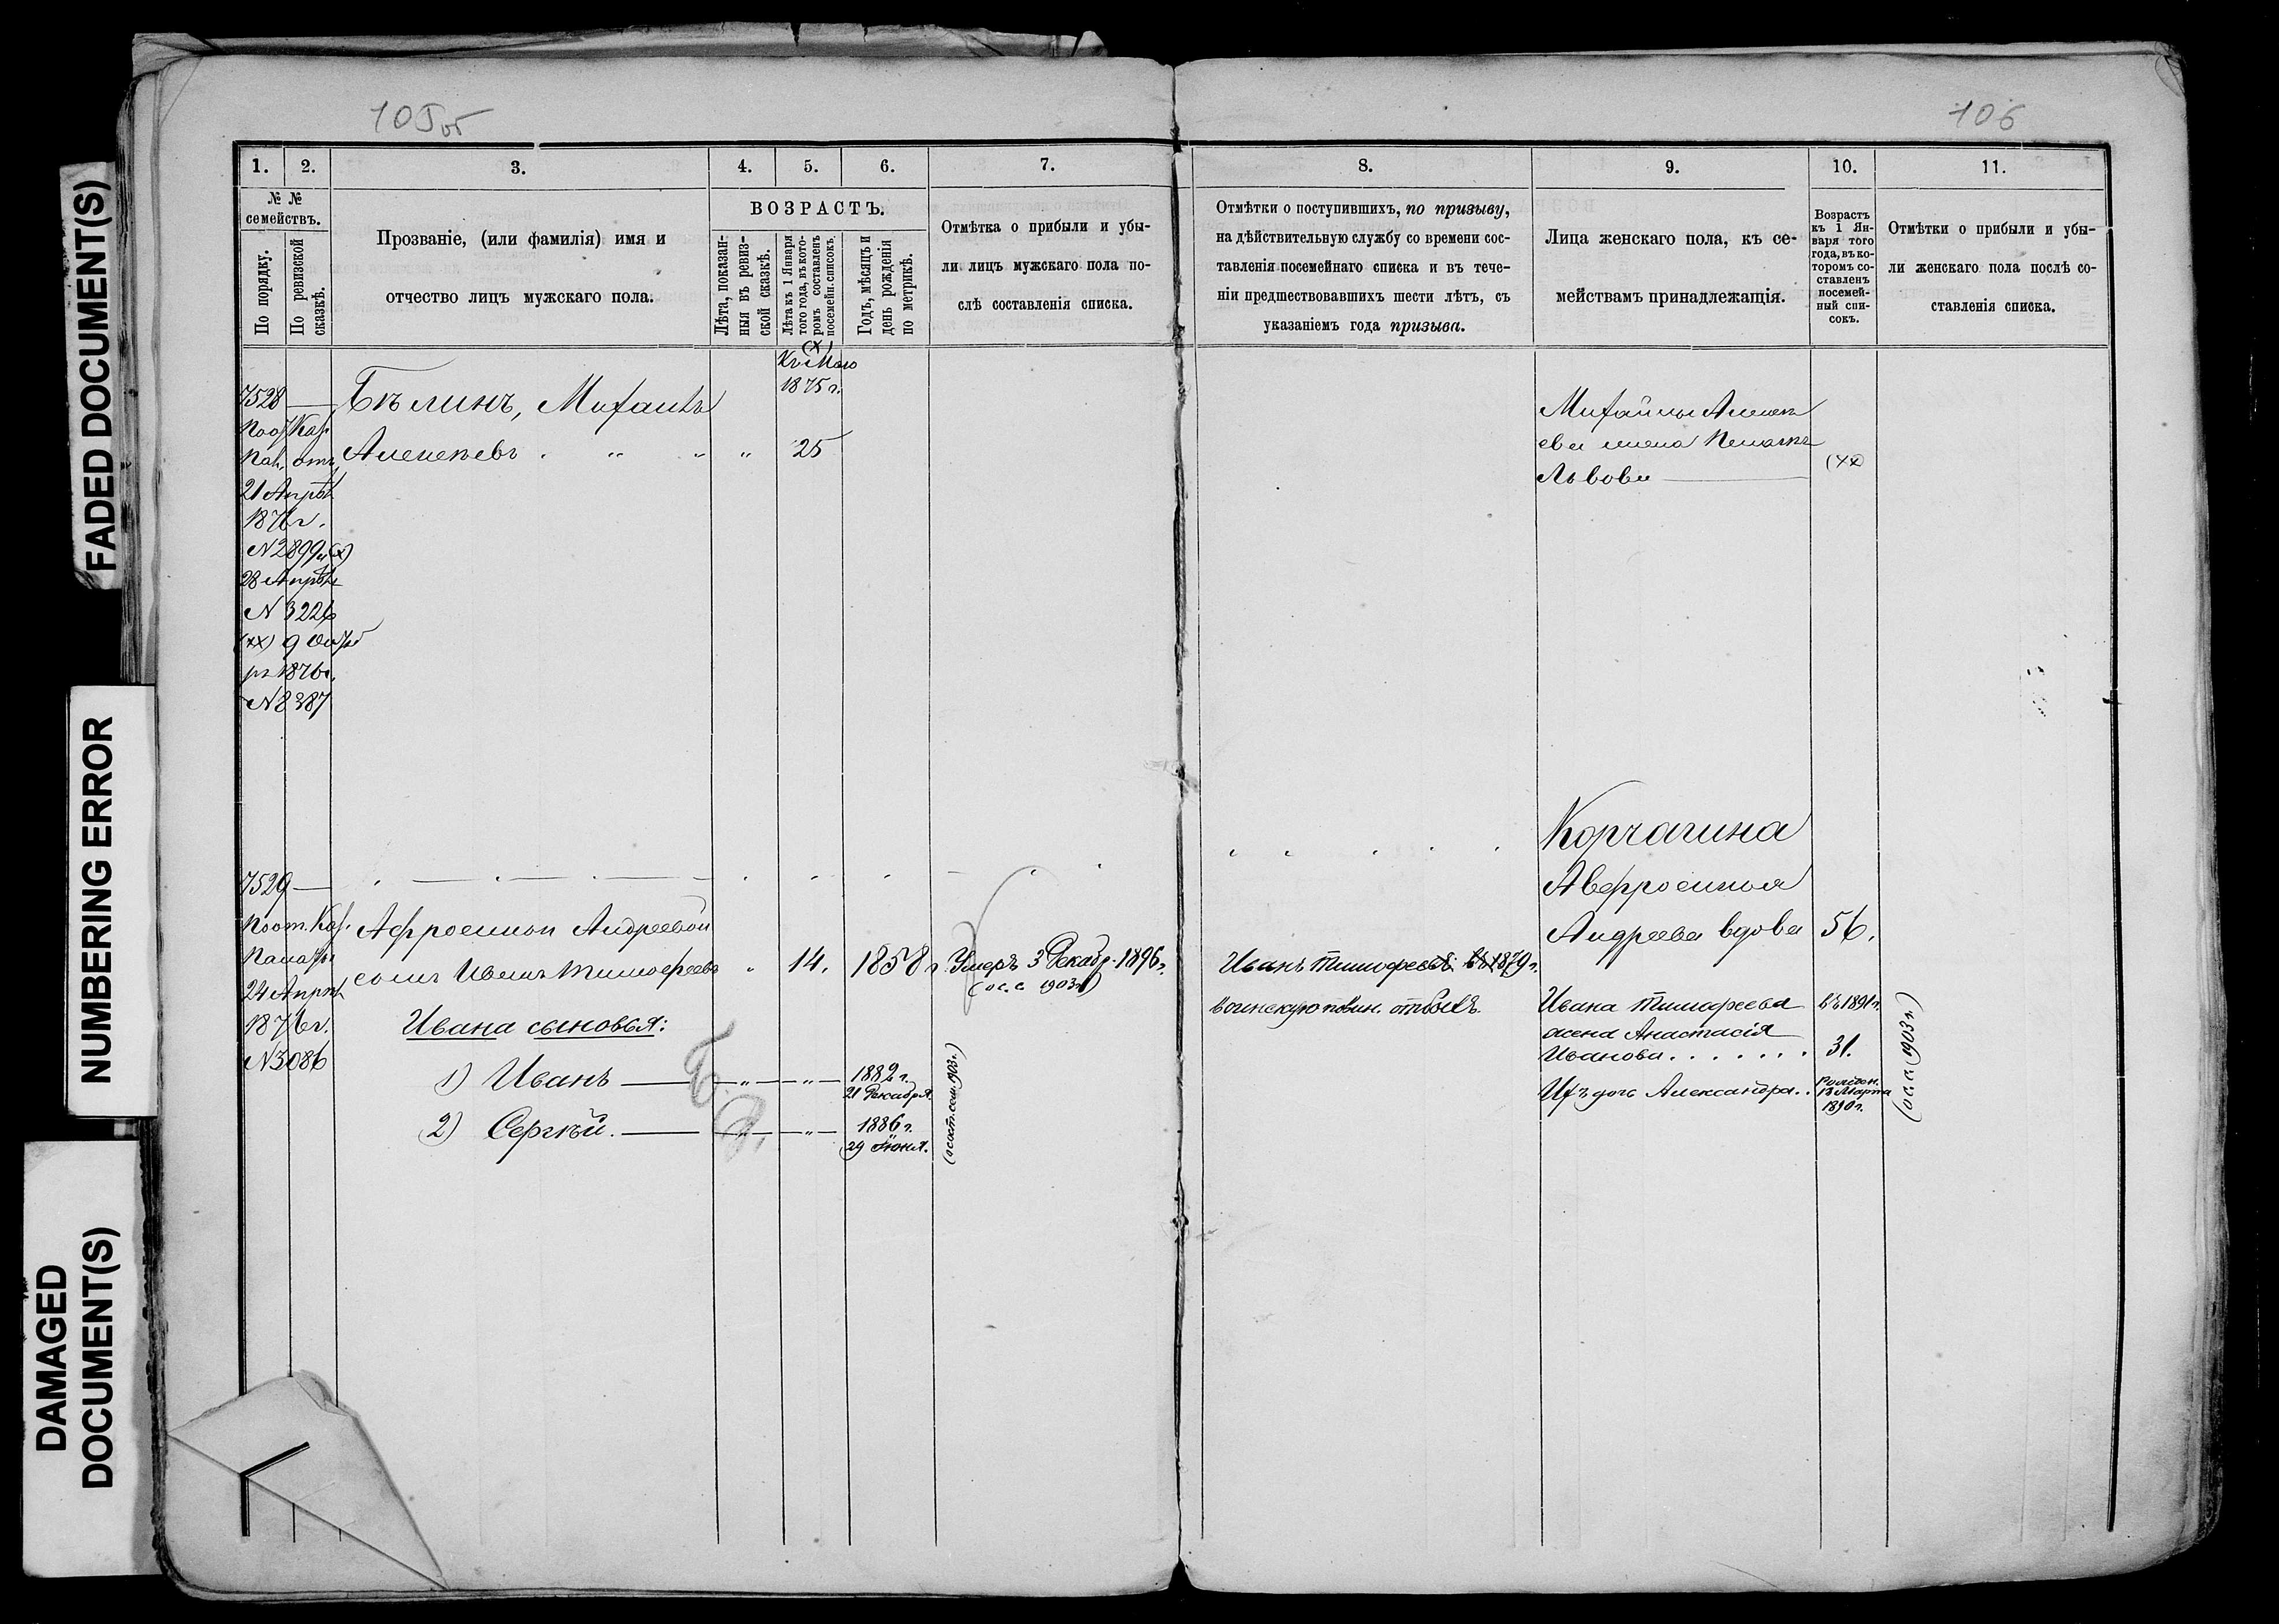 FADED DOCUMENT(S)
NUMBERING ERROR
DAMAGED
DOCUMENT(S)
105 об
106
1. 2. 3. 4. 5. 6. 7.
№ №
семействъ.
По порядку.
По ревизской
сказкѣ.
Прозваніе, (или фамилія) имя и
отчество лицъ мужскаго пола.
ВОЗРАСТЪ.
Лѣта, показан-
ныя въ ревиз-
ской сказкѣ.
Лѣта къ 1 Января
того года, въ кото-
ромъ составленъ
посемейн. списокъ.
Годъ, мѣсяцъ и
день рожденія
по метрикѣ.
Отмѣтка о прибыли и убы-
ли лицъ мужскаго пола по-
слѣ составленія списка.
8. 9. 10. 11.
Отмѣтки о поступившихъ, по призыву,
на дѣйствительную службу со времени сос-
тавленія посемейнаго списка и въ тече-
ніи предшествовавшихъ шести лѣтъ, съ
указаніемъ года призыва.
Лица женскаго пола, къ се-
мействамъ принадлежащія.
Возрастъ
къ 1 Ян-
варя того
года, въ ко-
торомъ со-
ставленъ
посемей-
ный спи-
сокъ.
Отмѣтки о прибыли и убы-
ли женскаго пола послѣ со-
ставленія списка.
7528
Каз.
Пал. отъ
21 Апрѣл
1876 г.
N 2899 и (х)
28 Апрѣл
N 3226
(хх) 9
1876 г.
N 8387
Бѣлинъ, Михаилъ
Алексѣевъ
(х)
Къ Маю
1875 г.
25
Михаила Алексѣ
ева жена
Львова
(хх)
7529
Пост. Каз.
Палаты
24 Апрѣл
1876 г.
N 3086
Афросиньи Андреевой
сынъ Иванъ Тимофеевъ
14.
1858 г.
Умеръ 3 Декабр. 1896 г.
(ос. с 1903 г.)
Ивана сыновья:
1) Иванъ
1882 г.
21 Декабря.
2) Сергѣй.
1886 г.
29 Іюня.
(осн. сем. 1903 г.)
Иванъ Тимофеевъ въ 1879 г.
воинскую повин. отбылъ.
Корчагина
Авфросинья
Андреева вдова 56.
Ивана Тимофеева въ 1891 г.
жена Анастасія
Иванова 31.
Ихъ дочь Александра
13 Марта
1890 г.
(ос. с. 1903 г.)